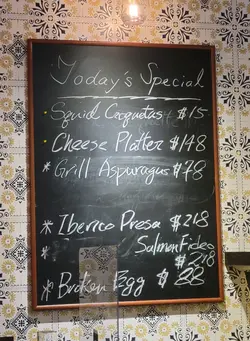 Today's Special
Squid Croquetas $15
Cheese Platter $148
* Grill Asparagus $78
* Iberico Presa $218
* Salmon Fideo
$218
* Broken Egg $ 88